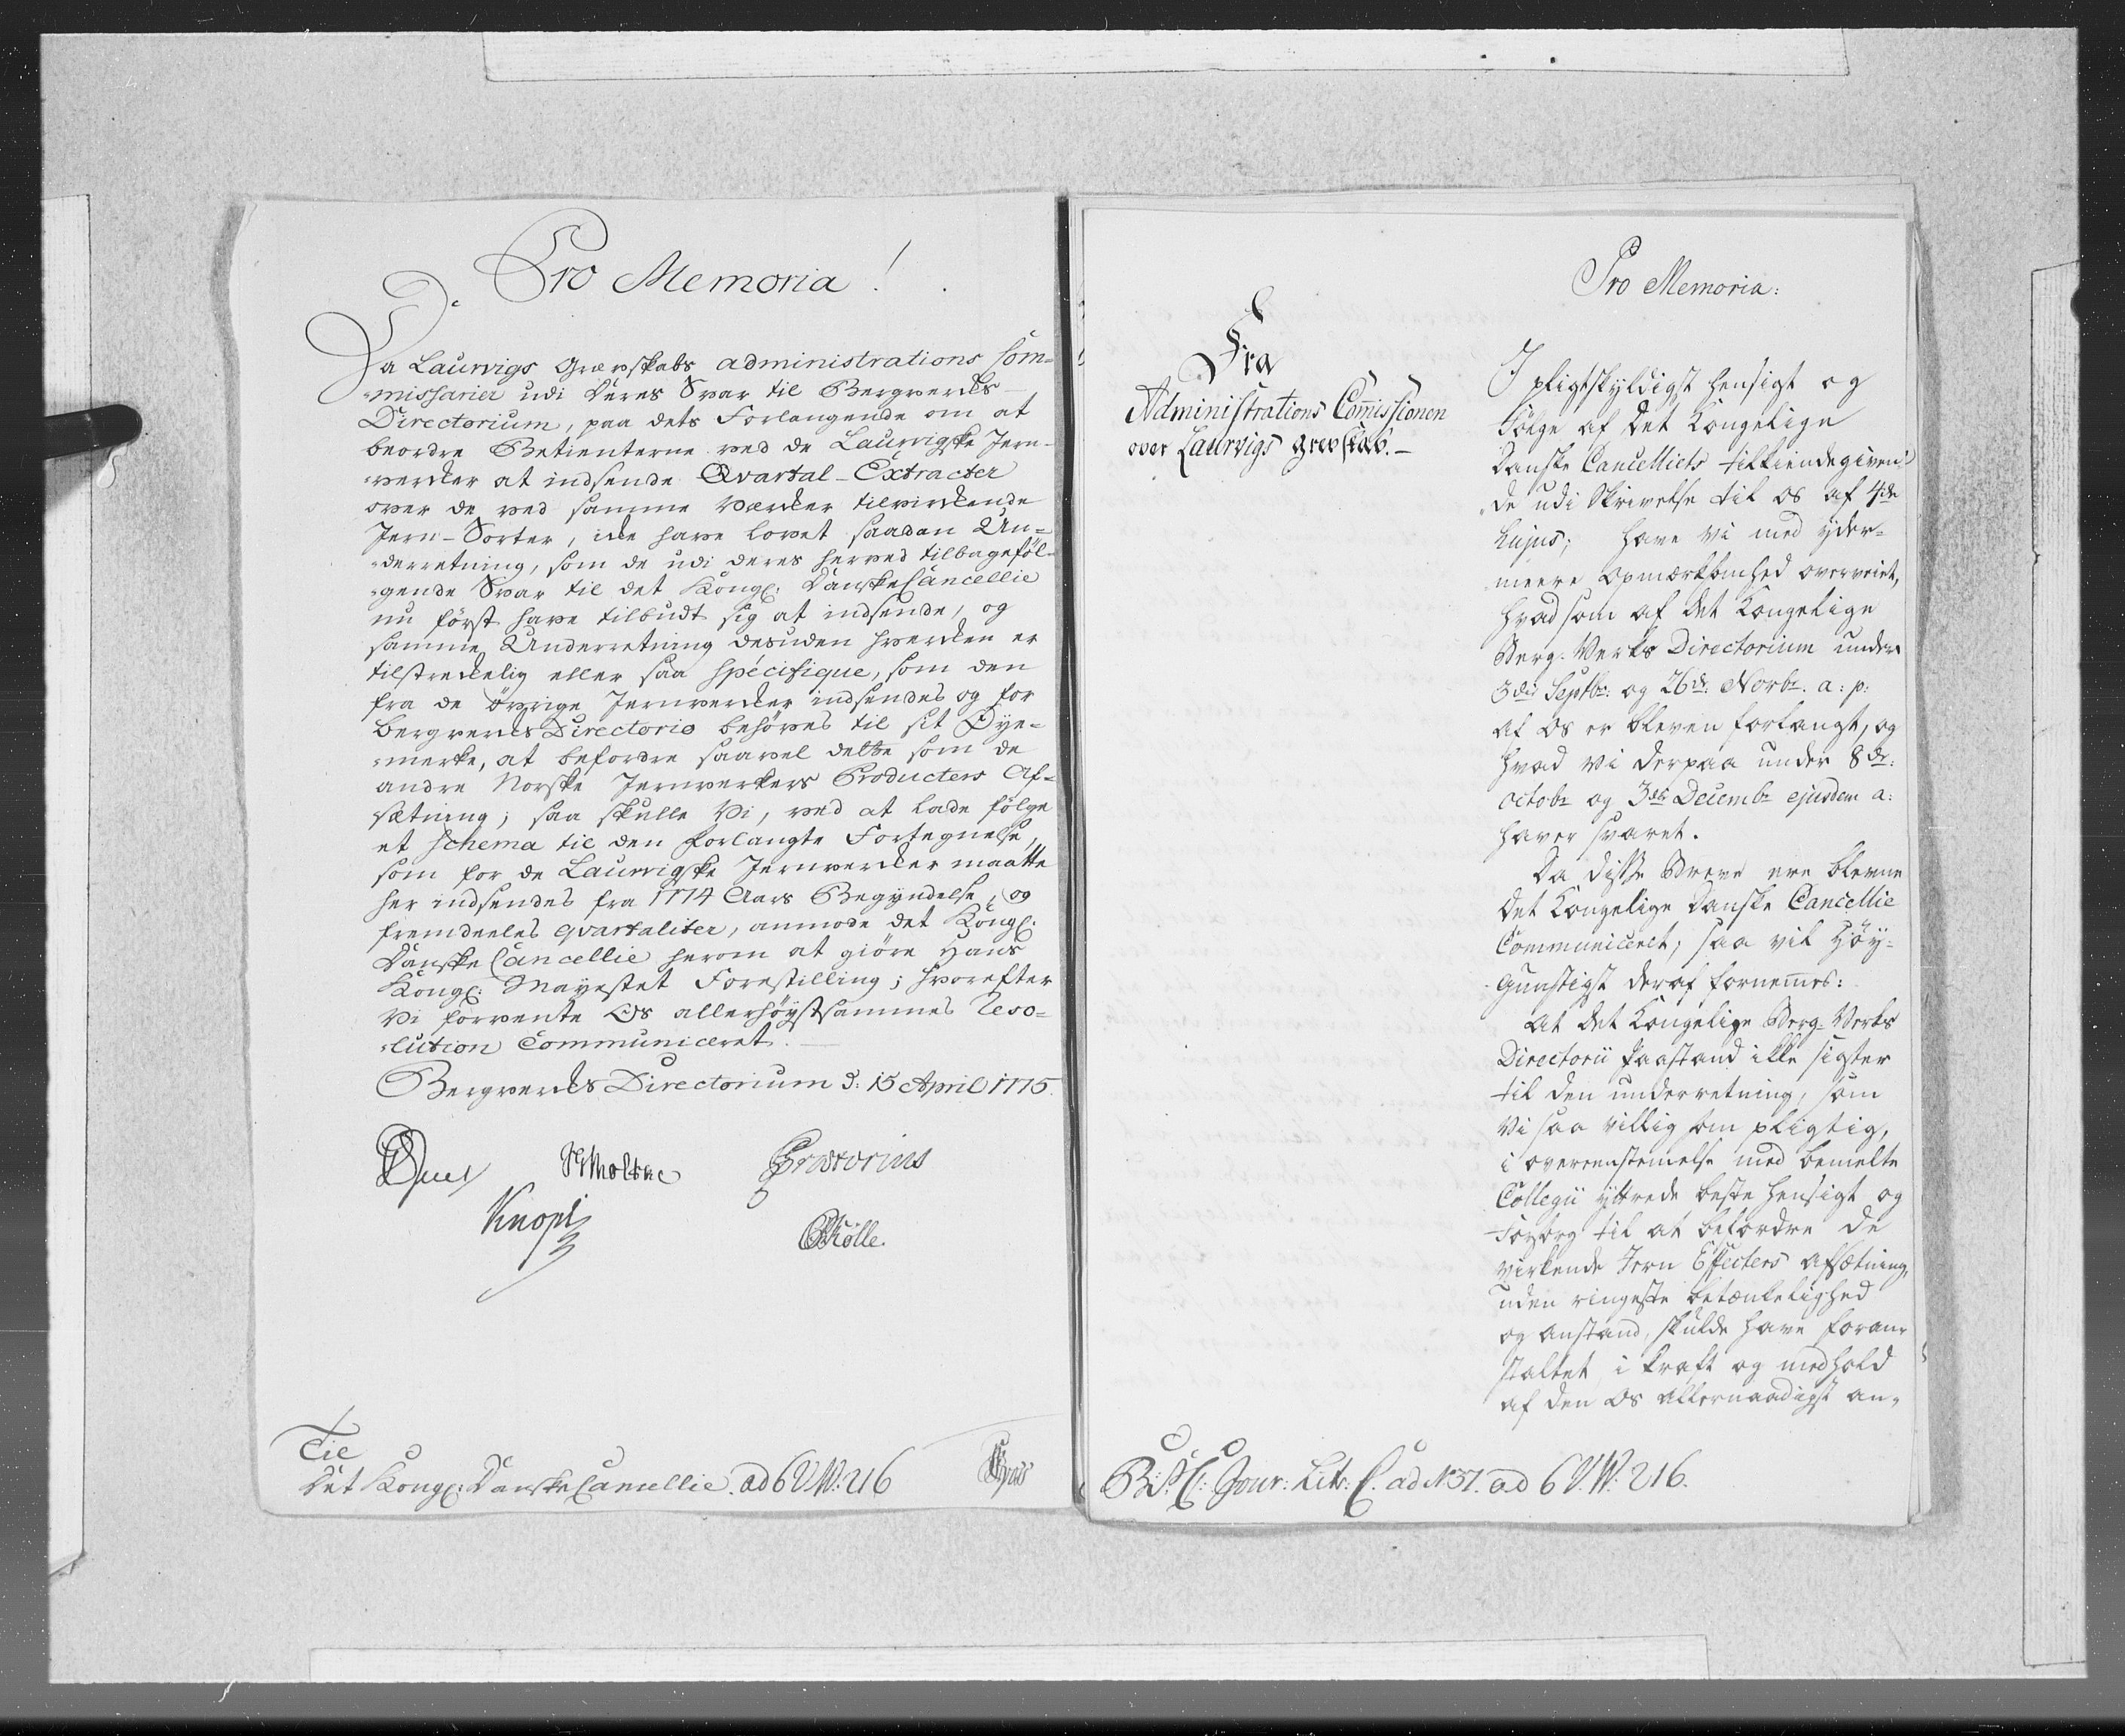 Pro Memoria!
Da Laurvigs Grævskabs administrations Com-
-missarier udi Deres Svar til Bergverks
Directorium, paa dets Forlangende om at
beordre Betienterne ved de Laurvigske Jern-
-verker at indsende Qvartal-Extracter
over de ved samme Værker tilvirkende
Jern-Sorter, icke have lovet saadan Un-
-derretning, som de udi deres herved tilbageføl-
-gende Svar til det Kongl: Danske Cancellie
nu først have tilbudt sig at indsende, og
samme Underretning desuden hverken er
tilstreckelig eller saa specifique, som den
fra de øvrige Jernverker indsendes og for
Bergverks Directorio behøves til sit Øye-
-merke, at befordre saavel dette som de
andre Norske Jernverkers Producters Af-
sætning; saa skulle Vi, ved at lade følge
et Schema til den forlangte Fortegnelse,
som for de Laurvigske Jernverker maatte
her indsendes fra 1774 Aars Begyndelse, og
fremdeeles qvartaliter, anmode det Kongl:
Danske Cancellie herom at giøre Hans
Kongl: Mayestet Forestilling; hvorefter
Vi forvente Os allerhøystsammes Reso-
-lution Communiceret.
Bergverks Directorium d: 15 April 1775.
Juel Moltke Prætorius
Knopf Kølle.
Til
Det Kongl: Danske Cancellie. ad 6 V. W: 216
Pro Memoria:
Fra
Administrations Commissionen
over Laurvigs Grevskab.-
I pligtskyldigst hensigt og
Følge af Det Kongelige
Danske Cancelliets tilkiendegiven-
de udi Skrivelse til os af 4de
hujus; have vi med yder-
meere opmærksomhed overveiet,
hvad som af det Kongelige
Berg-Verks Directorium under
3die Septbr: og 26de Novbr. a: p:
af os er bleven forlangt, og
hvad vi derpaa under 8de:
octobr og 3die Decembr ejusdem a:
haver svaret.
Da disse Breve ere blevne
det Kongelige Danske Cancellie
Communiceret, saa vil Høy-
-gunstigst deraf fornemmes:
At det Kongelige Berg-Verks
Directorii Paastand ikke sigter
til den underretning, som
vi saa villig som pligtig,
i overeenstemelse med bemelte
Collegii yttrede beste hensigt og
Forsorg til at befordre de
virkende Jern Effecters afsætning,
uden ringeste betænkelighed
og anstand, skulde have foran-
staltet, i kraft og medhold
af den os allernaadigst an-
B: D: C: Jour: Litr: C. ad No 37. ad 6 V. W: 216.